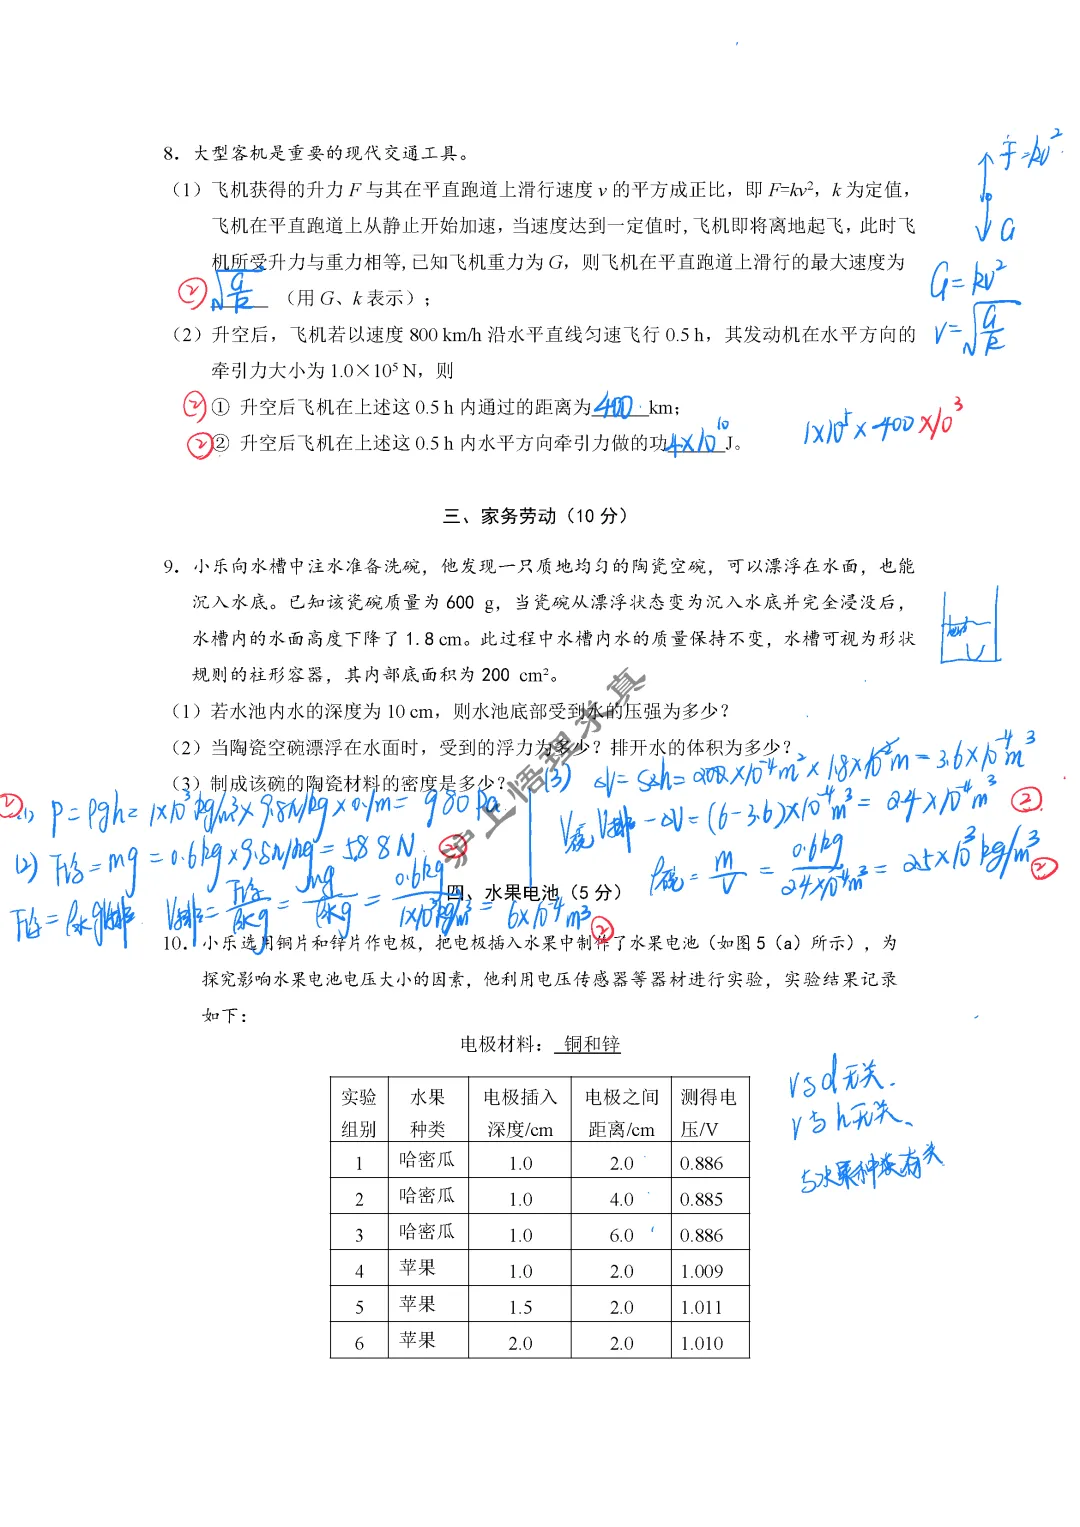 8. 大型客机是重要的现代交通工具。
（1）飞机获得的升力 F 与其在平直跑道上滑行速度 v 的平方成正比，即 F=kv²，k 为定值，
飞机在平直跑道上从静止开始加速，当速度达到一定值时，飞机即将离地起飞，此时飞
机所受升力与重力相等，已知飞机重力为 G，则飞机在平直跑道上滑行的最大速度为
② √(G/k) （用 G、k 表示）；
F=kv²
G
G=kv²
v=√(G/k)
（2）升空后，飞机若以速度 800 km/h 沿水平直线匀速飞行 0.5 h，其发动机在水平方向的
牵引力大小为 1.0×10⁵ N，则
② ① 升空后飞机在上述这 0.5 h 内通过的距离为 400 km；
② ② 升空后飞机在上述这 0.5 h 内水平方向牵引力做的功 4×10¹⁰ J。
1×10⁵×400×10³
三、家务劳动（10 分）
9. 小乐向水槽中注水准备洗碗，他发现一只质地均匀的陶瓷空碗，可以漂浮在水面，也能
沉入水底。已知该瓷碗质量为 600 g，当瓷碗从漂浮状态变为沉入水底并完全浸没后，
水槽内的水面高度下降了 1.8 cm。此过程中水槽内水的质量保持不变，水槽可视为形状
规则的柱形容器，其内部底面积为 200 cm²。
（1）若水池内水的深度为 10 cm，则水池底部受到水的压强为多少？
（2）当陶瓷空碗漂浮在水面时，受到的浮力为多少？排开水的体积为多少？
（3）制成该碗的陶瓷材料的密度是多少？
沪上悟理求真
② (1) P=ρgh=1×10³kg/m³×9.8N/kg×0.1m=980Pa
(2) F浮=mg=0.6kg×9.8N/kg=5.88N ②
F浮=ρ水gV排 V排=F浮/ρ水g=mg/ρ水g=0.6kg/1×10³kg/m³=6×10⁻⁴m³ ②
(3) ΔV=SΔh=200×10⁻⁴m²×1.8×10⁻²m=3.6×10⁻⁴m³
V碗=V排-ΔV=(6-3.6)×10⁻⁴m³=2.4×10⁻⁴m³ ②
ρ碗=m/V=0.6kg/2.4×10⁻⁴m³=2.5×10³kg/m³ ②
四、水果电池（5 分）
10. 小乐选用铜片和锌片作电极，把电极插入水果中制作了水果电池（如图 5（a）所示），为
探究影响水果电池电压大小的因素，他利用电压传感器等器材进行实验，实验结果记录
如下：
电极材料： 铜和锌
实验组别 水果种类 电极插入深度/cm 电极之间距离/cm 测得电压/V
1 哈密瓜 1.0 2.0 0.886
2 哈密瓜 1.0 4.0 0.885
3 哈密瓜 1.0 6.0 0.886
4 苹果 1.0 2.0 1.009
5 苹果 1.5 2.0 1.011
6 苹果 2.0 2.0 1.010
V与d无关.
V与h无关、
与水果种类有关